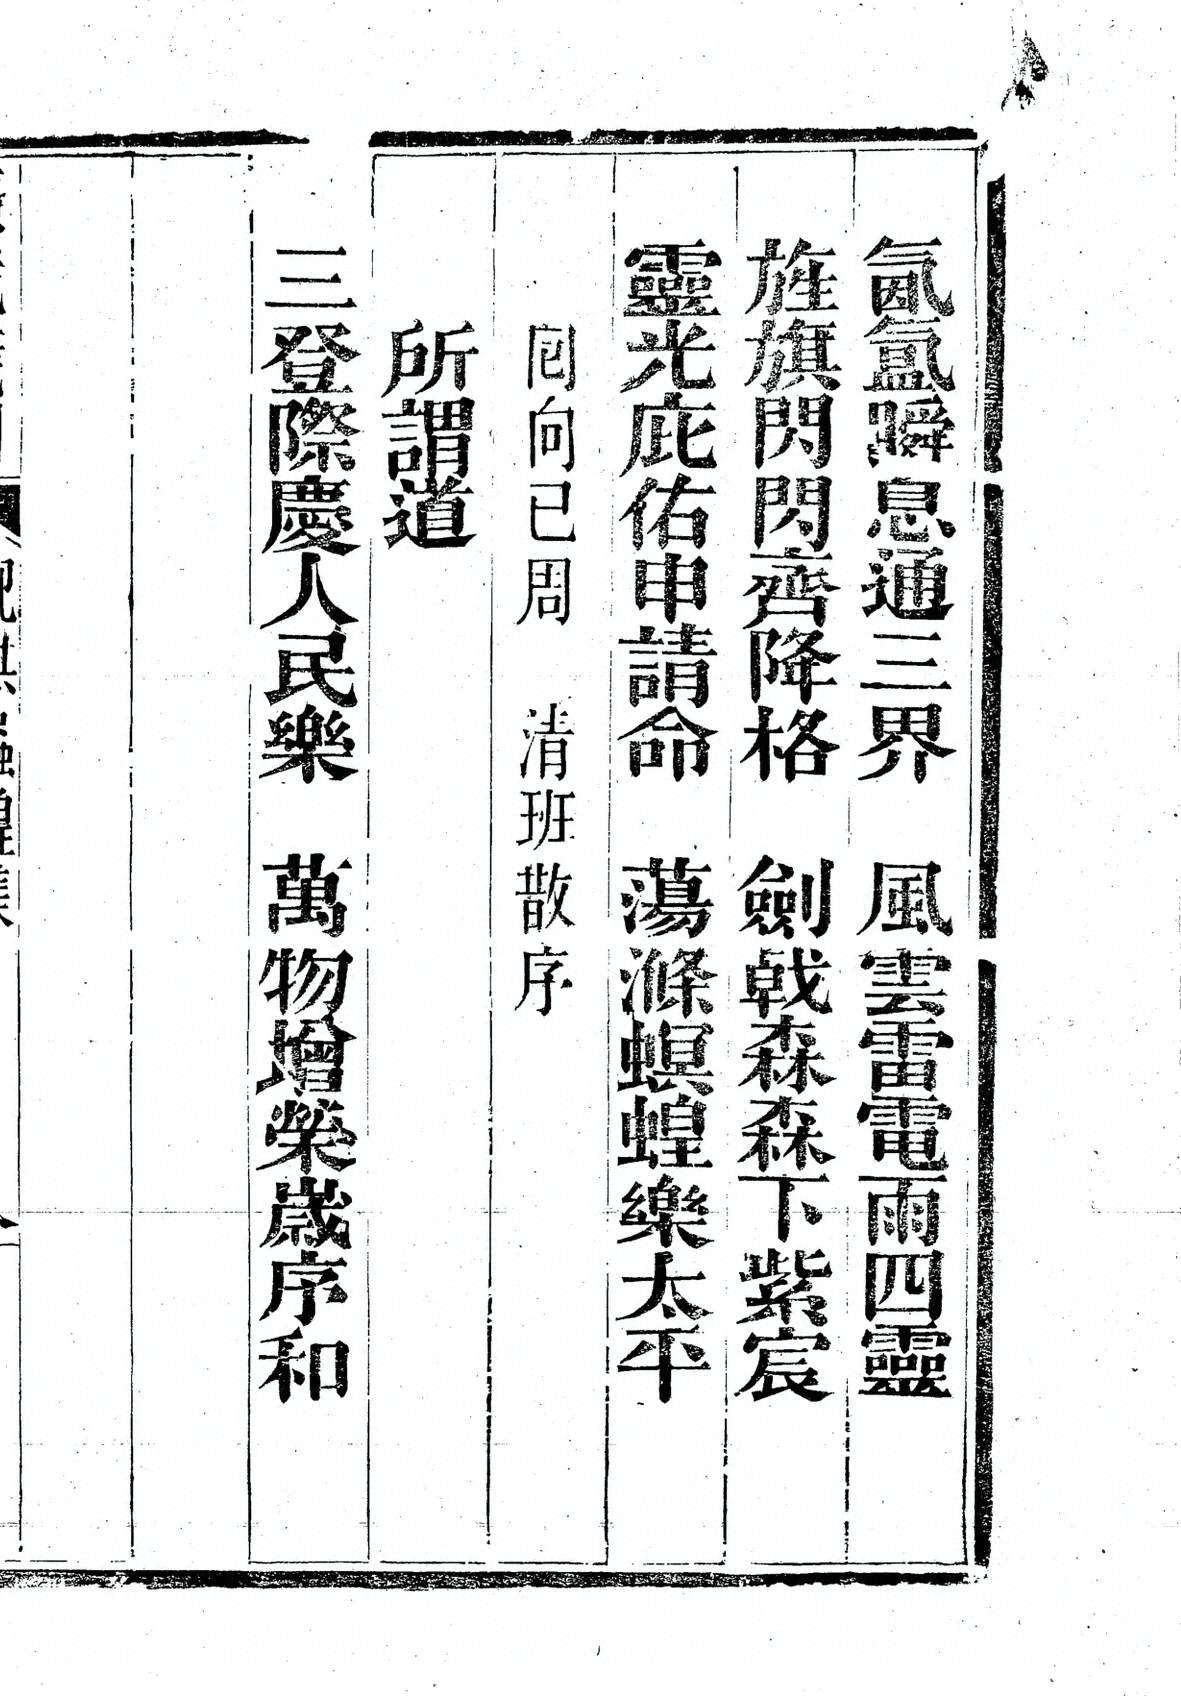 氤氳瞬息通三界　風雲雷電雨四靈
旌旗閃閃齊降格　劍戟森森下紫宸
靈光庇佑申請命　蕩滌螟蝗樂太平
囘向已周　清班散序
所謂道
三登際慶人民樂　萬物增榮歲序和